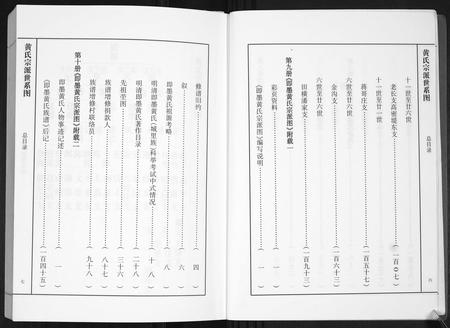 黄氏宗派世系图
总目录
六
十一世至廿六世
老长支高密堤东支(一百〇七)
十一世至廿一世
蒋哥庄支(一百五十七)
六世至廿六世
金沟支(一百六十三)
六世至廿六世
田横潘家支(一百九十三)
第九册《即墨黄氏宗派图》附载一
彩页资料
《即墨黄氏宗派图》编写说明(一)
修谱旧约(四)
叙(六)
即墨黄氏祖源考略(八)
明清即墨黄氏(城里族)科举考试中式情况(十八)
明清即墨黄氏著作目录(二十八)
先祖茔图(三十六)
族谱增修捐款人(八十七)
族谱增修村联络员(九十八)
第十册《即墨黄氏宗派图》附载二
即墨黄氏人物事迹记述(一)
《即墨黄氏族谱》后记(一百四十五)
黄氏宗派世系图
总目录
七